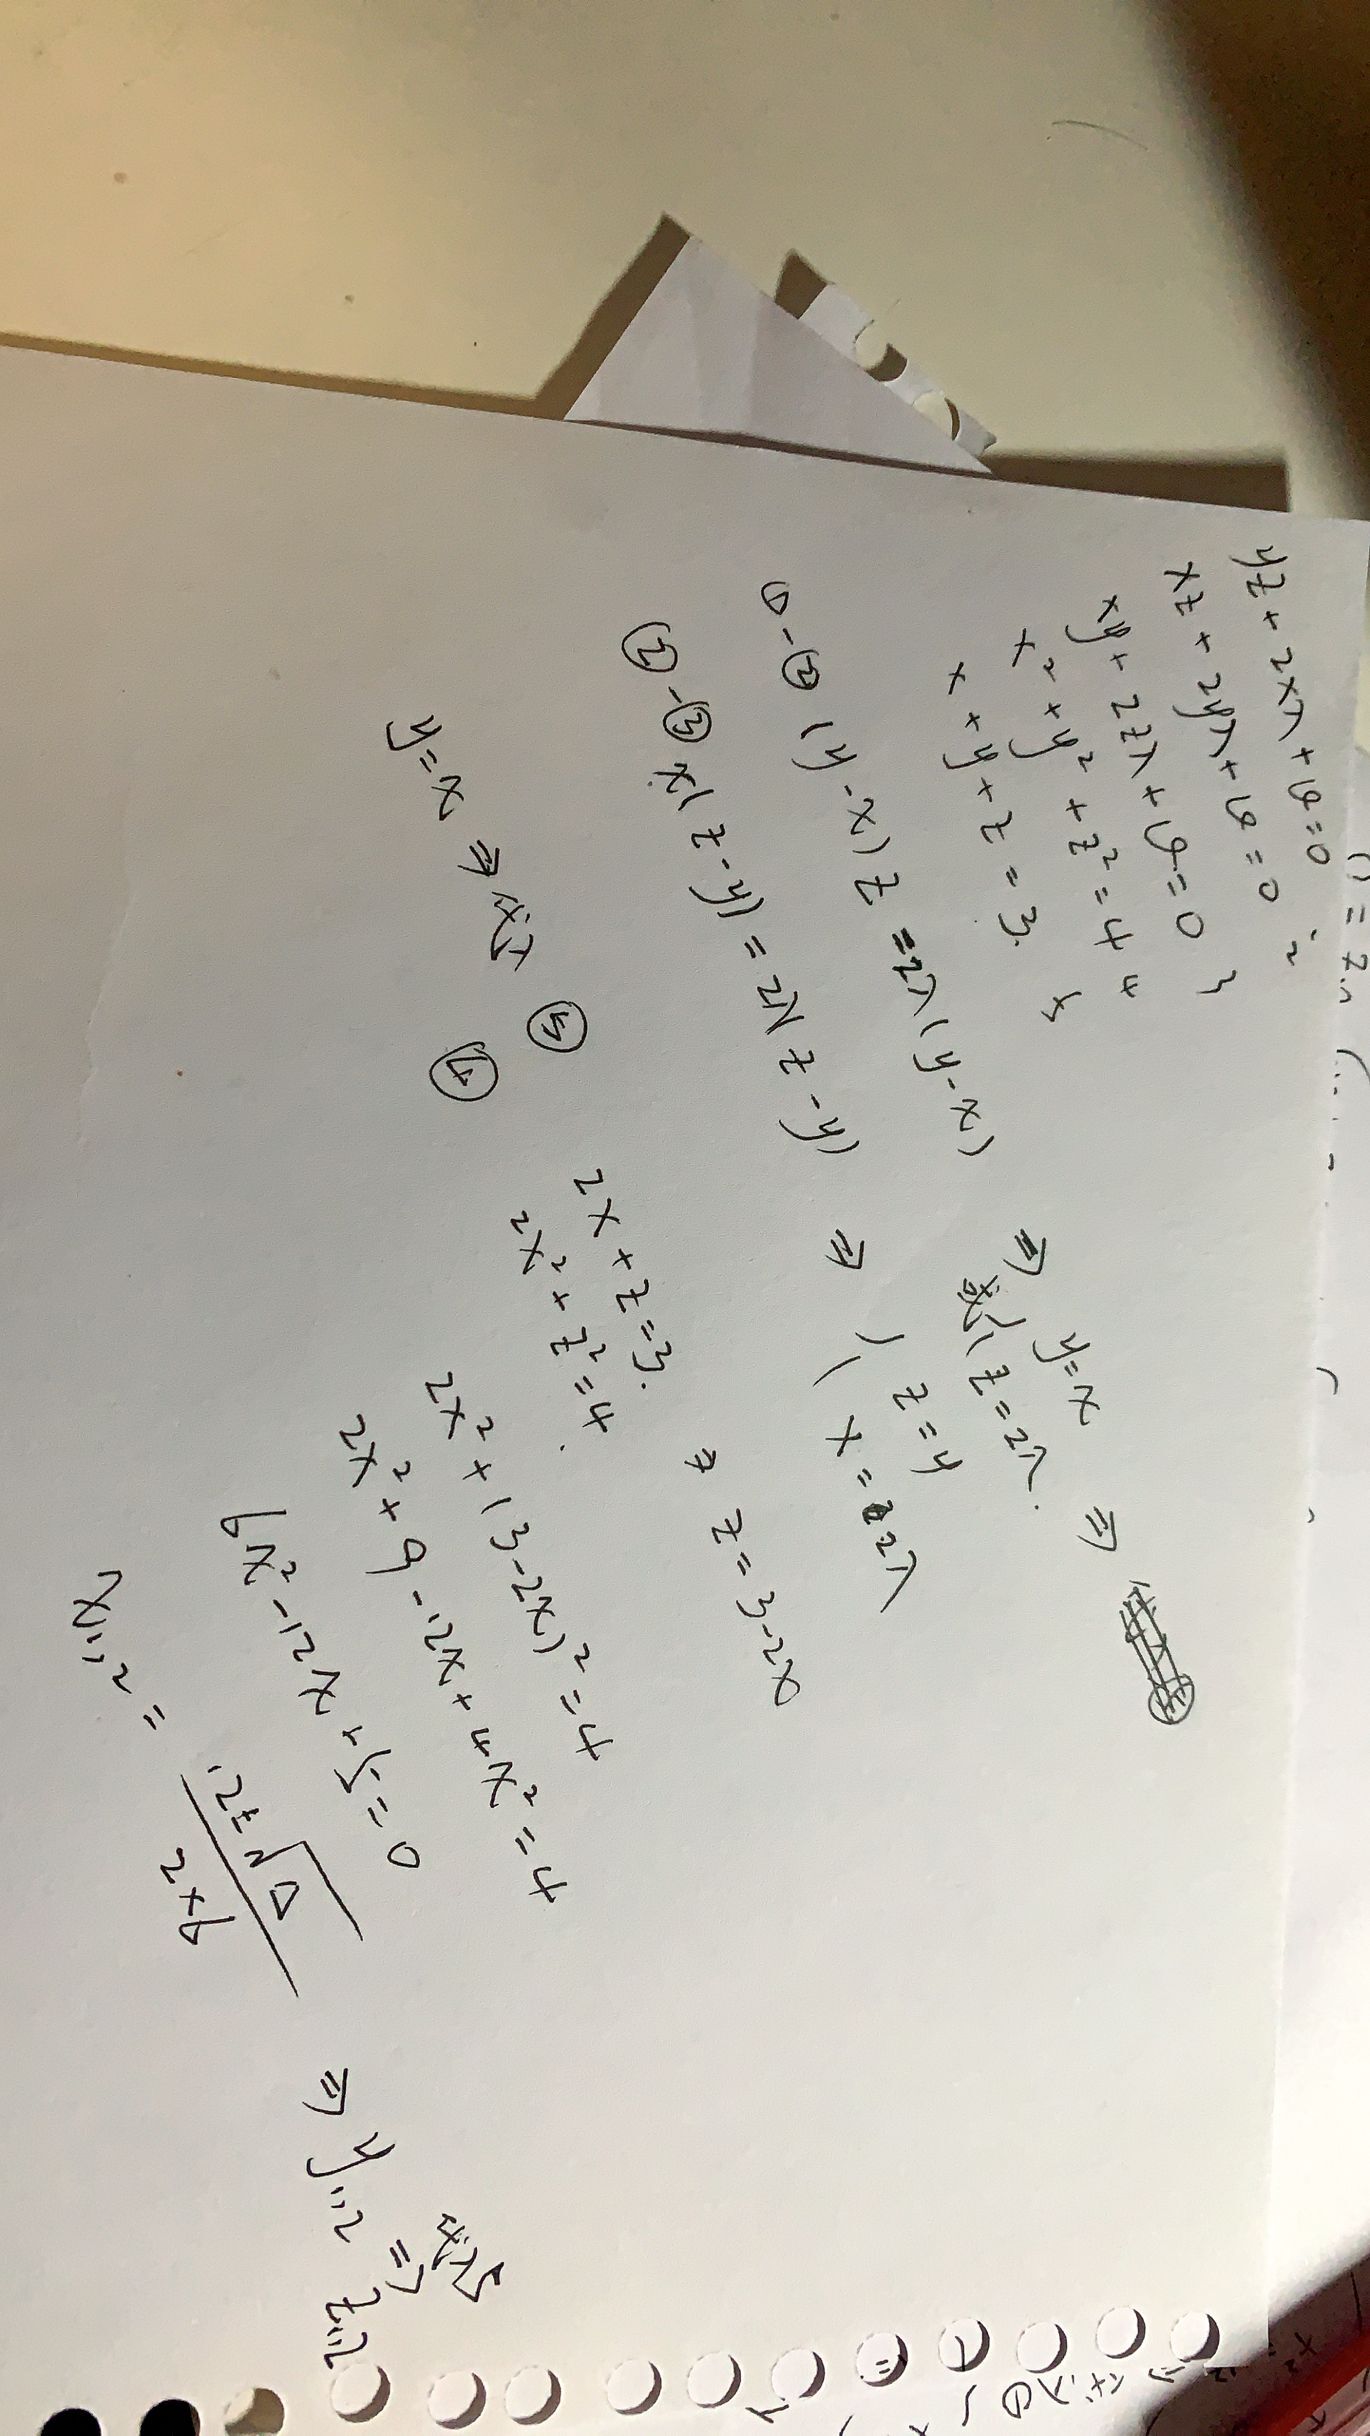 yz + 2xλ + φ = 0
xz + 2yλ + φ = 0 2
xy + 2zλ + φ = 0 3
x² + y² + z² = 4 4
x + y + z = 3. 5
① - ② (y - x) z = 2λ (y - x) ⇒ y = x
或 z = 2λ. ⇒
② - ③ x (z - y) = 2λ(z - y) ⇒ z = y
x = 2λ
y = x ⇒ 代入 ⑤ 2x + z = 3. ⇒ z = 3 - 2x
④ 2x² + z² = 4.
2x² + (3 - 2x)² = 4
2x² + 9 - 12x + 4x² = 4
6x² - 12x + 5 = 0
x₁,₂ = 12 ± √Δ / 2×6 ⇒ y₁,₂ = z₁,₂